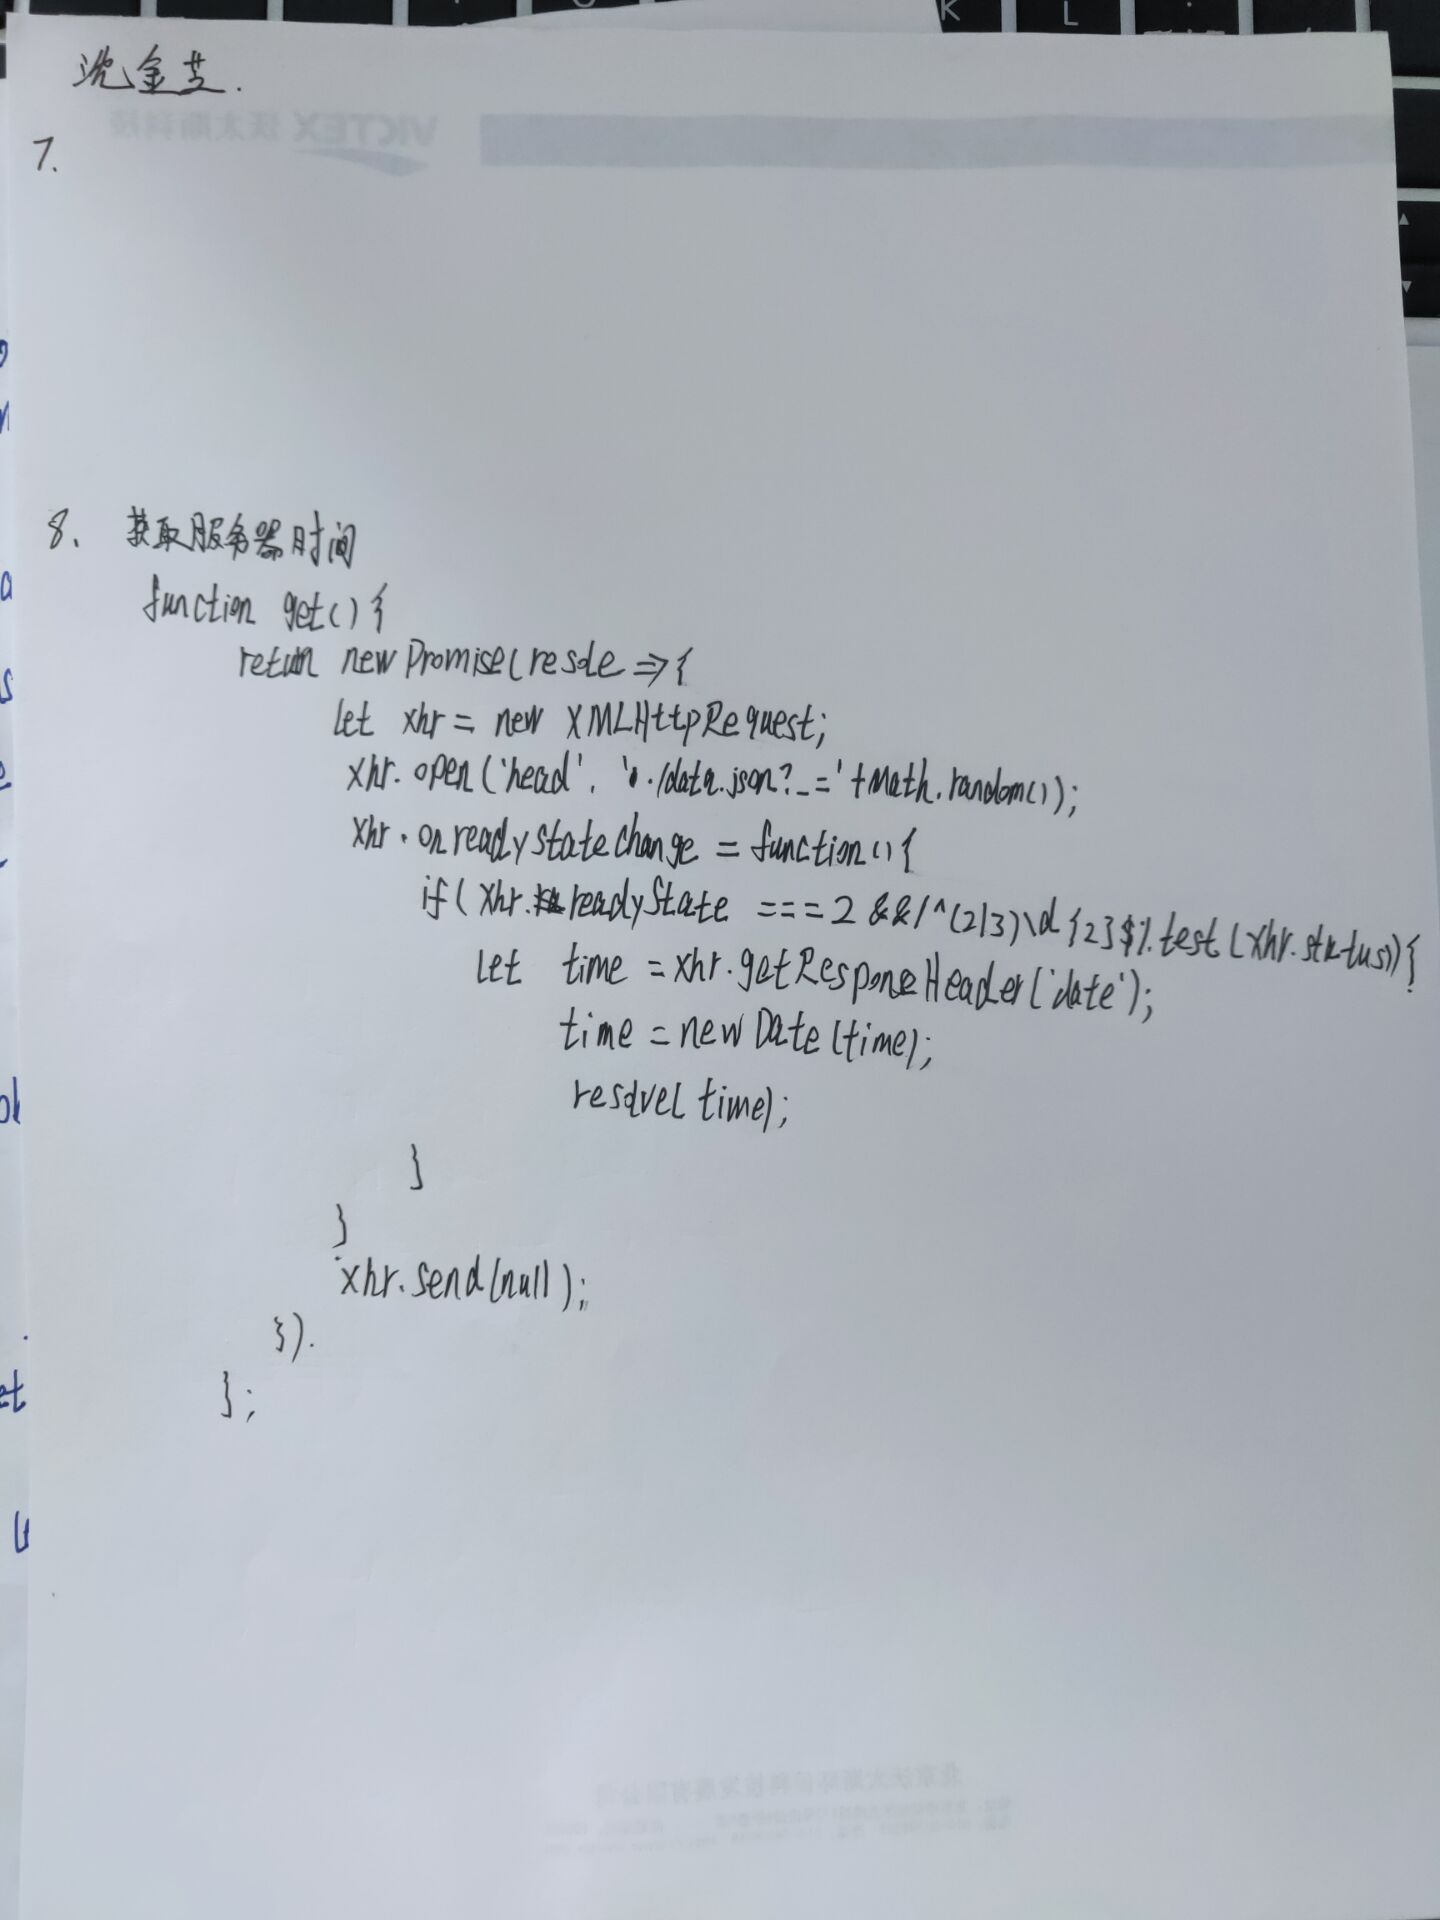 沈金芝.
VICTEX 沃太斯科技
7.
8、 获取服务器时间
function get() {
return new Promise(resole => {
let xhr = new XMLHttpRequest;
xhr.open('head', './data.json?_='+Math.random());
xhr.onreadystatechange = function() {
if( xhr.readyState === 2 && /^(2|3)\d{2}$/.test(xhr.status)) {
let time = xhr.getResponseHeader('date');
time = new Date(time);
resolve( time);
}
}
xhr.send(null);
}).
};